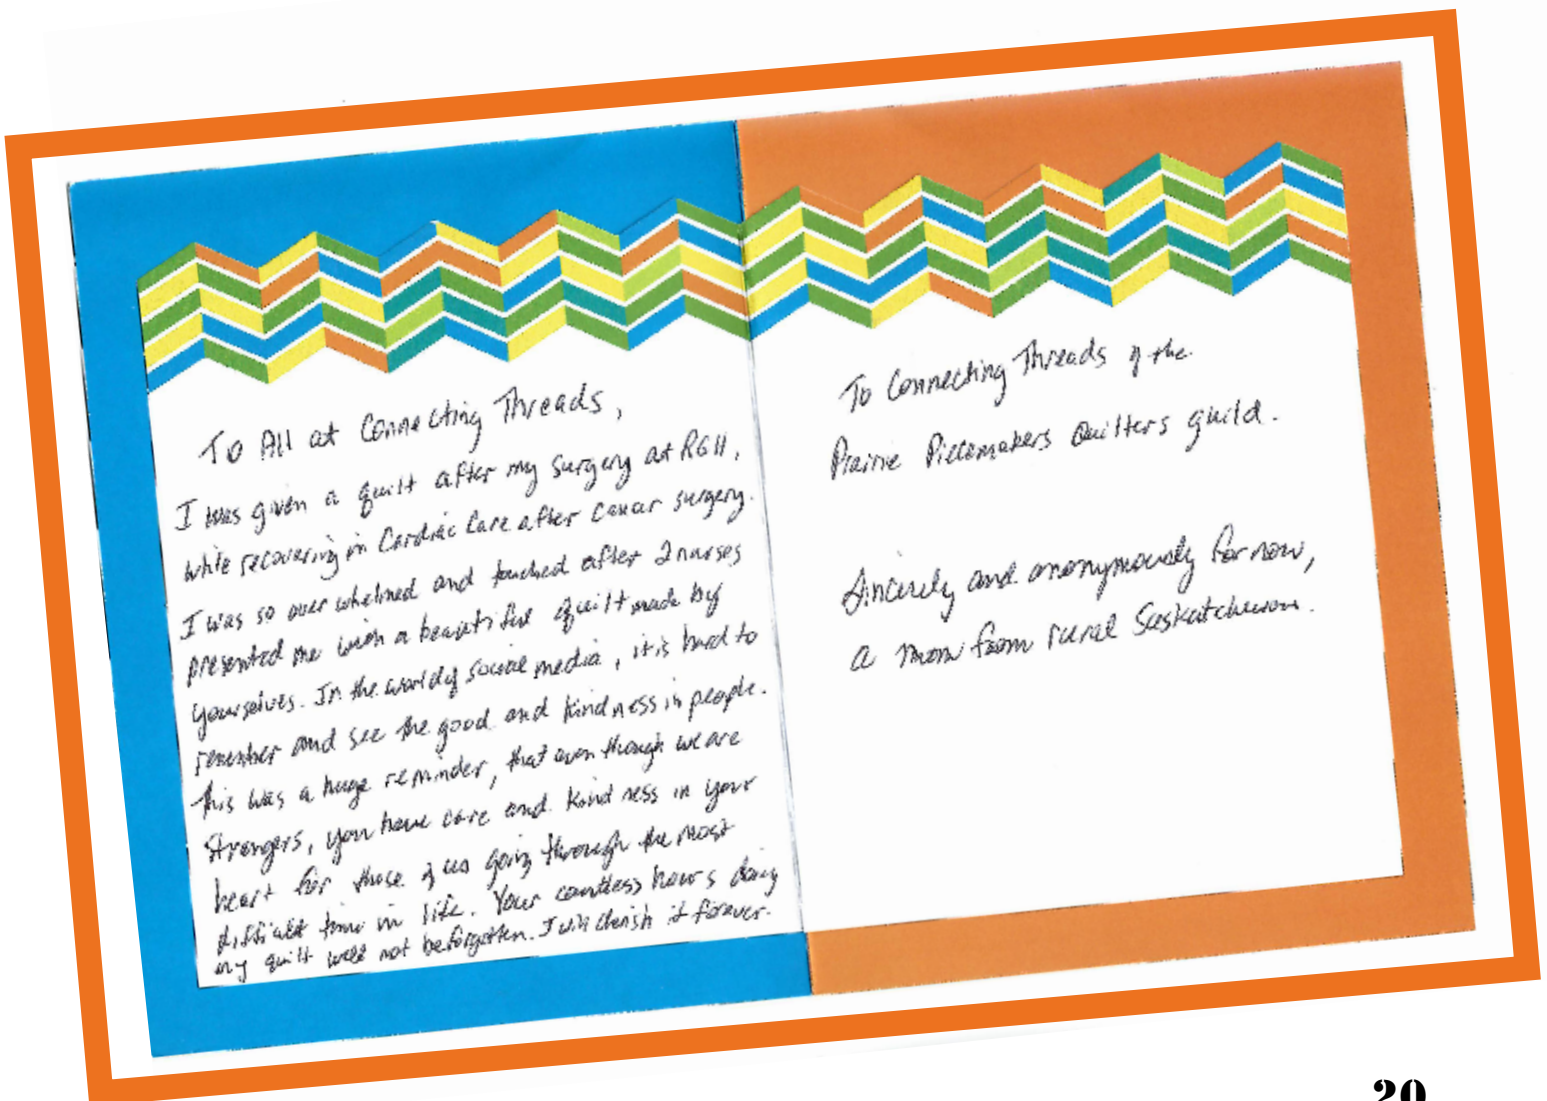 To All at Connecting Threads,
I was given a quilt after my surgery at RGH,
while recovering in Cardiac Care after cancer surgery.
I was so over whelmed and touched after 2 nurses
presented me with a beautiful quilt made by
yourselves. In the world of social media, it is hard to
remember and see the good and kindness in people.
this was a huge reminder, that even though we are
strangers, you have care and kindness in your
heart for those of us going through the most
difficult time in life. Your countless hours doing
my quilt will not be forgotten. I will cherish it forever.
To Connecting Threads of the
Prairie Piecemakers Quilters guild.
Sincerely and anonymously for now,
a mom from rural Saskatchewan.
20